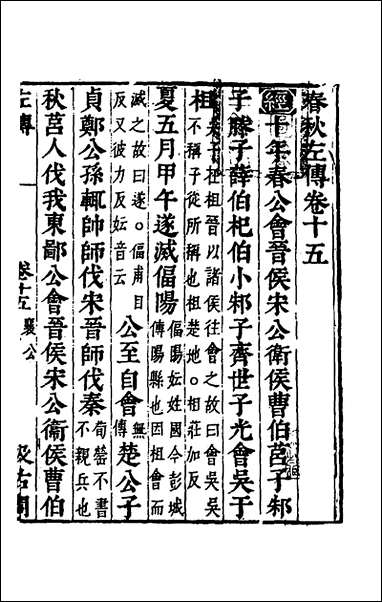 春秋左傳卷十五
經十年春公會晉侯宋公衛侯曹伯莒子邾
子滕子薛伯杞伯小邾子齊世子光會吳于
柤吳子在柤晉以諸侯往會之故曰會吳吳
不稱子從所稱也柤楚地。相莊加反
夏五月甲午遂滅偪陽偪陽妘姓國今彭城
傅陽縣也因柤會而
滅之故曰遂。偪甫目
反又彼力反妘音云公至自會無
傳楚公子
貞鄭公孫輒帥師伐宋晉師伐秦荀罃不書
不親兵也
秋莒人伐我東鄙公會晉侯宋公衞侯曹伯
左傳 一 卷十五襄公 汲古閣